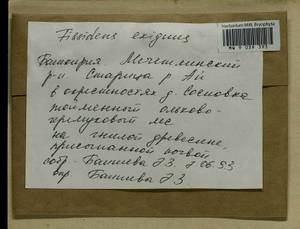 Herbarium MW, Bryophyta
MW 9 039 393
Fissidens exiguus
Башкирия Мечетлинский
р-н Старица р. Ай
в окрестностях д. Сосновка
пойменный ольхово-
черемуховый лес
на гнилой древесине,
присыпанной почвой
собр - Баишева Э.З. 7.06.93
опр Баишева Э.З